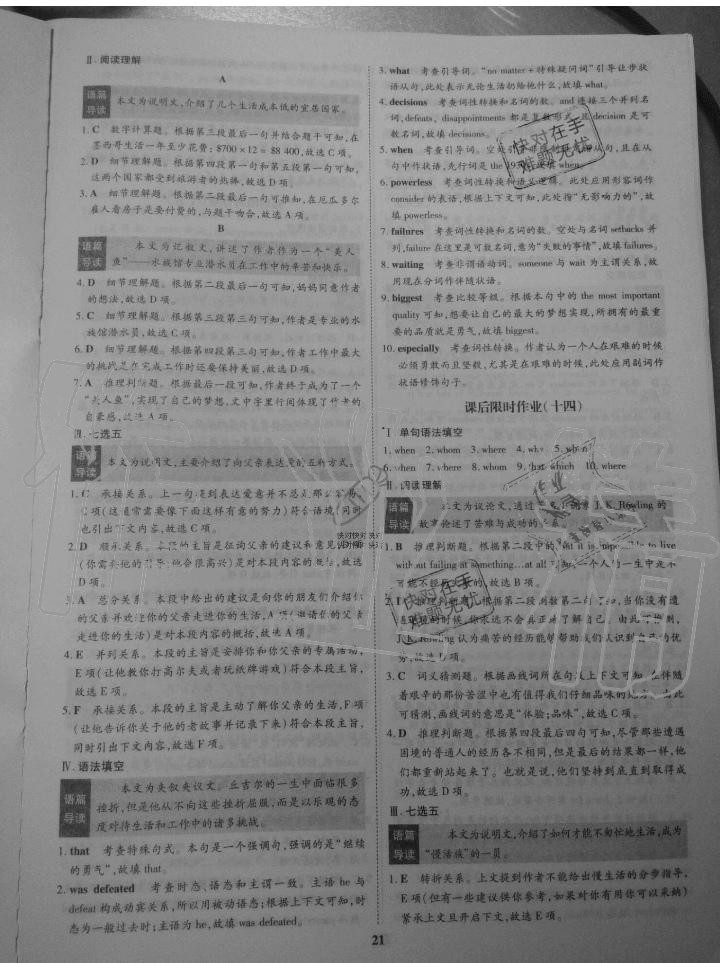 Ⅱ. 阅读理解
A
语篇导读
本文为说明文,介绍了几个生活成本低的宜居国家。
1. C 数字计算题。根据第三段最后一句并结合题干可知,在
墨西哥生活一年至少花费: $8700×12=$88 400,故选 C 项。
2. D 细节理解题。根据第四段第一句和第五段第一句可知,
这两个国家都受到旅游者的热捧,故选 D 项。
3. A 细节理解题。根据第二段最后一句可推知,在厄瓜多尔
雇人看房子是要付费的,与题干吻合,故选 A 项。
B
语篇导读
本文为记叙文,讲述了作者作为一个“美人
鱼”——水族馆专业潜水员在工作中的辛苦和快乐。
4. D 细节理解题。根据第二段最后一句可知,妈妈同意作者
的想法,故选 D 项。
5. C 细节理解题。根据第三段第三句可知,作者是专业的水
族馆潜水员,故选 C 项。
6. D 细节理解题。根据第四段第三句可知,作者工作中最大
的挑战是在完成工作时还要保持美丽,故选 D 项。
7. A 推理判断题。根据最后一段可知,作者终于成为了一个
“美人鱼”,实现了自己的梦想,文中字里行间体现了作者的
自豪感,故选 A 项。
Ⅲ. 七选五
语篇导读
本文为说明文,主要介绍了向父亲表达爱的五种方式。
1. C 承接关系。上一句提到表达爱意并不总是那么容易,
C 项(这通常需要像下面这样有意的努力)符合语境,同时
也引出下文内容,故选 C 项。
2. D 顺承关系。本段的主旨是征询父亲的建议和意见,D 项
(你需要他的引导,他会很高兴)是对本段内容的概括,故选
D 项。
3. A 总分关系。本段中给出的建议是向你的朋友们介绍你
的父亲并欢迎你的父亲走进你的生活,A 项(邀请你的父亲
走进你的生活)是对本段内容的概括,故选 A 项。
4. E 并列关系。本段的主旨是安排你和你父亲的专属活动,
E 项(让他教你打高尔夫或者玩纸牌游戏)符合本段主旨,
故选 E 项。
5. F 承接关系。本段的主旨是主动了解你父亲的生活,F 项
(让他告诉你关于他的老故事并记录下来)符合本段主旨,
同时引出下文内容,故选 F 项。
Ⅳ. 语法填空
语篇导读
本文为夹叙夹议文。丘吉尔的一生中面临很多
挫折,但是他从不向这些挫折屈服,而是以乐观的态
度对待生活和工作中的诸多挑战。
1. that 考查特殊句式。本句是一个强调句,强调的是“继续
的勇气”,故填 that。
2. was defeated 考查时态、语态和主谓一致。主语 he 与
defeat 构成动宾关系,所以用被动语态;根据上下文可知,时
态为一般过去时;主语为 he,故填 was defeated。
3. what 考查引导词。“no matter + 特殊疑问词”引导让步状
语从句,此处表示无论生活扔给他什么,故填 what。
4. decisions 考查词性转换和名词的数。and 连接三个并列名
词,defeats, disappointments 都是复数形式,且 decision 是可
数名词,故填 decisions。
5. when 考查引导词。空处引导非限制性定语从句,且在从
句中作状语,先行词是 the 1930s,故填 when。
6. powerless 考查词性转换和语义逻辑。此处应用形容词作
consider 的表语,根据上下文可知,此处指“无影响力的”,故
填 powerless。
7. failures 考查词性转换和名词的数。空处与名词 setbacks 并
列,failure 在这里是可数名词,意为“失败的事情”,故填 failures。
8. waiting 考查非谓语动词。someone 与 wait 为主谓关系,故
用现在分词作伴随状语。
9. biggest 考查比较等级。根据本句中的 the most important
quality 可知,想要让自己的最大的梦想实现,所拥有的最重
要的品质就是勇气,故填 biggest。
10. especially 考查词性转换。作者认为一个人在艰难的时候
必须勇敢而且坚毅,尤其是在艰难的时候,此处应用副词作
状语修饰句子。
课后限时作业(十四)
Ⅰ. 单句语法填空
1. when 2. whom 3. where 4. why 5. when
6. when 7. where 8. whom 9. that/which 10. where
Ⅱ. 阅读理解
语篇导读
本文为议论文,通过 J. K. Rowling 的
故事论述了苦难与成功的关系。
1. B 推理判断题。根据第二段中的 that it is impossible to live
without failing at something...at all 可知,一个人的一生中是不
可能不经历失败的,故选 B 项。
2. 推理判断题。根据第二段倒数第二句可知,当你没有遭
遇艰难的时候,你永远不会真正地了解自己。由此可推测,
J. K. Rowling 认为痛苦的经历能够帮助我们认识到自己的优
势,故选
3. C 词义猜测题。根据画线词所在句及上下文可知,伴随
着艰辛的那份苦涩中也有值得我们仔细品味的地方。由此
可猜测,画线词的意思是“体验;品味”,故选 C 项。
4. D 推理判断题。根据第四段最后四句可知,尽管那些遭遇
困境的普通人的经历各不相同,但是最后的结果都一样,他
们都重新站起来了。也就是说,他们坚持到底直到取得成
功,故选 D 项。
Ⅲ. 七选五
语篇导读
本文为说明文,介绍了如何才能不匆忙地生活,成为
“慢活族”的一员。
1. E 转折关系。上文提到作者不能给出慢生活的分步指导,
E 项(但有一些建议供你参考,如果对你有用你可以采纳)
紧承上文且开启下文,故选 E 项。
21
快对在手
难题无忧
快对在手
难题无忧
快对快对快对
快对快对快对
作业